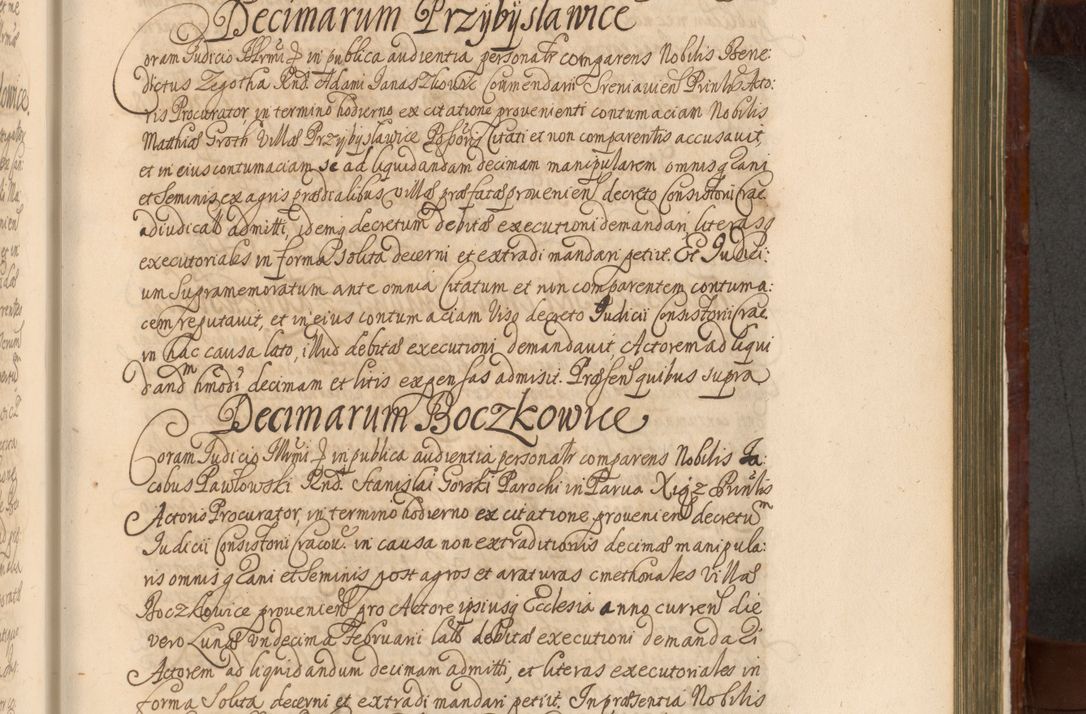 Decimarum Przybysławice
Coram Judicio Illrmi D in publica audientia personalr comparens Nobilis Bene:
dictus Zegotha Rnd Adami Janaszkowic Commendarii Sreniavien Prinlis Acto:
ris Procurator in termino hodierno ex citatione provenienti contumaciam Nobilis
Matthiæ Groth Villæ Przybysławice Possoris Citati et non comparentis accusavit,
et in eius contumaciam se ad liquidandam decimam manipularem omnis grani
et Seminis ex agris prædialibus villæ præfatæ provenien decreto Consistorii Crac.
adiudicatt admitti, idemq decretum debitæ executioni demandari, literasq
executoriales in forma solita decerni et extradi mandari petiit. Et Judici:
um Supramemoratum ante omnia Citatum et non comparentem contuma:
cem reputavit, et in eius contumaciam Visq decreto Judicii Consistorii Crac.
in hac causa lato, illud debitæ executioni demandavit, Actorem ad liqui
dandm hmodi decimam et litis expensas admisit. Præsen quibus supra
Decimarum Boczkowice
Coram Judicio Illrmi D in publica audientia personalr comparens Nobilis Ja:
cobus Pawłowski Rnd. Stanislai Gorski Parochi in Parva Xigz Prinlis
Actoris Procurator, in termino hodierno ex citatione provenien decretum
Judicii Consistorii Cracov. in causa non extraditionis decimæ manipula:
ris omnis grani et Seminis post agros et araturas cmethonales Villæ
Boczkowice provenien pro Actore ipsiusq Ecclesia anno curren die
vero Lunæ Undecima Februarii latt debitæ executioni demandari
Actorem ad liquidandum decimam admitti, et literas executoriales in
forma Solita decerni et extradi mandari petiit. In præsentia Nobilis